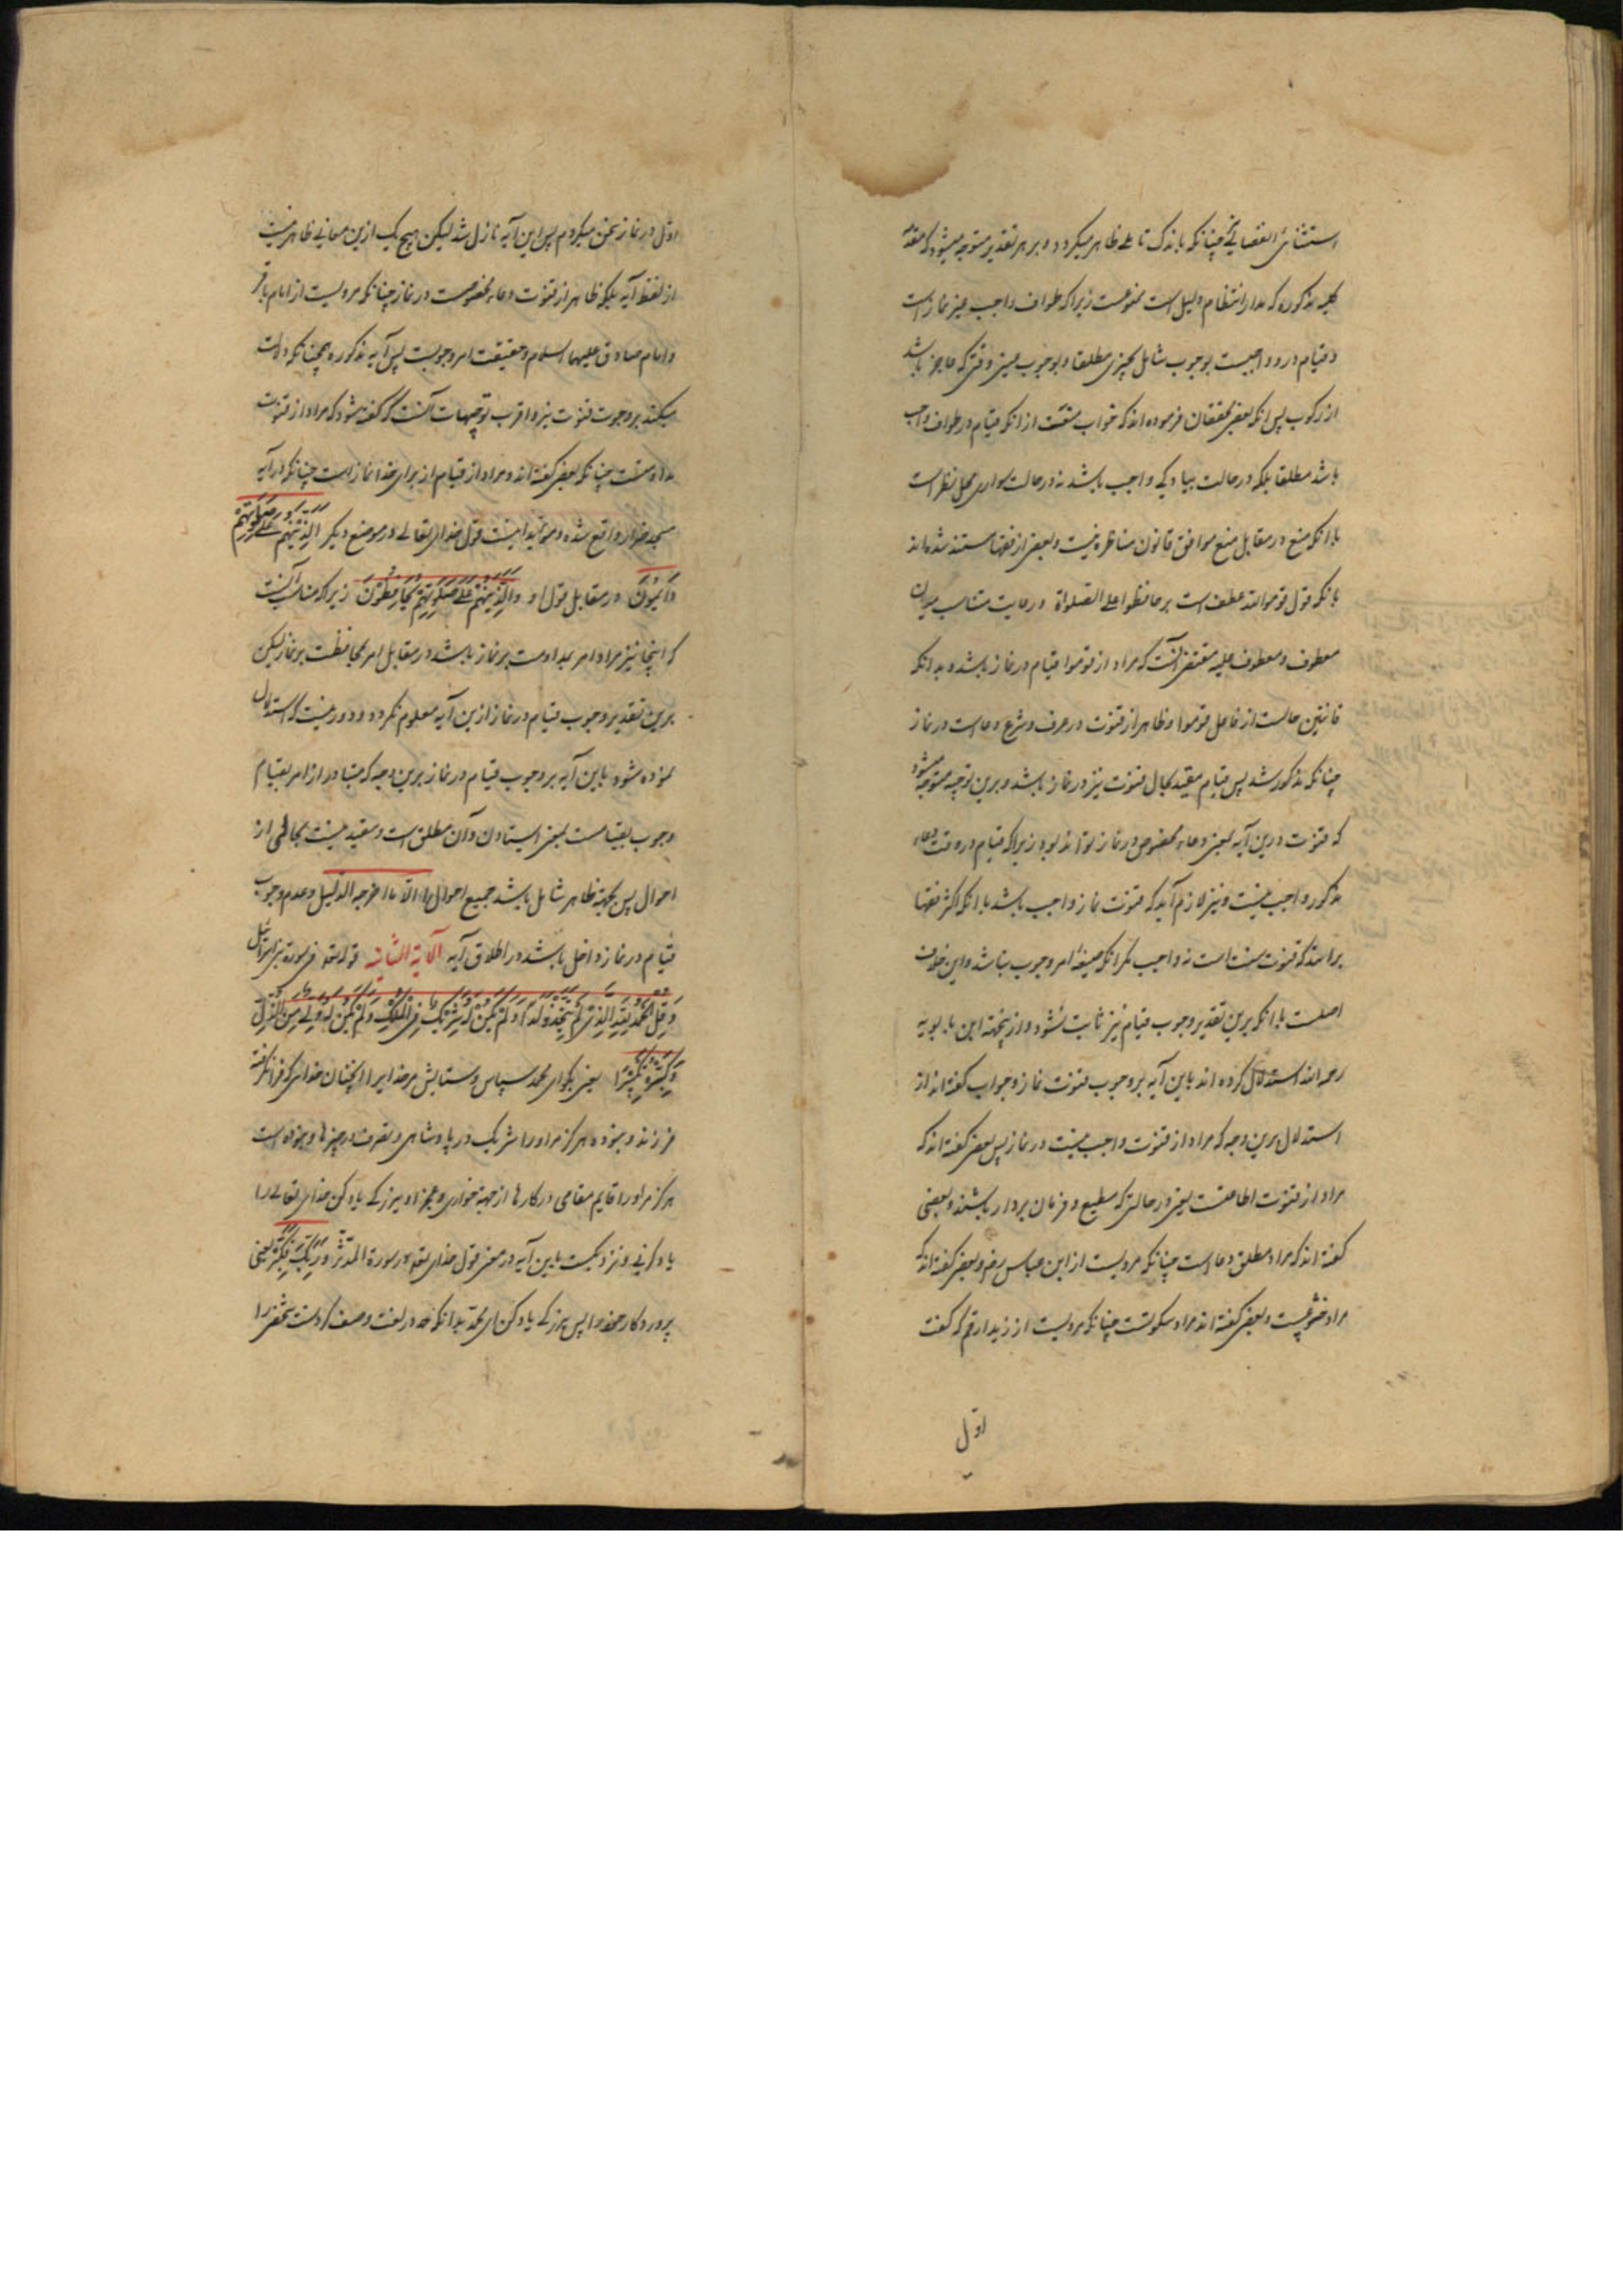 استثنائی انفصالی چنانکه باندک تاملی ظاهر میکردد و بر هر تقدیر متوجه میشود که مقدمه
کلیه مذکوره که مدار انتظام دلیل است ممنوعست زیرا که طواف واجب غیر نماز است
و قیام درو واجبست بوجوب شامل تخییری مطلقا و بوجوب عینی وقتی که عاجز باشد
از رکوب پس انکه بعضی محققان فرموده اند که جواب منعست از انکه قیام در طواف واجب
باشد مطلقا بلکه در حالت پیادکی واجب باشد نه در حالت سواری محل نظر است
با انکه منع در مقابل منع موافق قانون مناظره نیست و بعضی از فقها مستند شده اند
بانکه قول قوموا لله عطف است بر حافظوا علی الصلواة و رعایت مناسب میان
معطوف و معطوف علیه مقتضی آنست که مراد از قوموا قیام در نماز باشد و بدانکه
قانتین حالست از فاعل قوموا و ظاهر از قنوت در عرف و شرع دعاست در نماز
چنانکه مذکور شد پس قیام مقید بحال قنوت نیز در نماز باشد و برین توجیه متوجه میشود
که قنوت درین آیه بمعنی دعاء مخصوص در نماز نتواند بود زیرا که قیام در وقت دعاء
مذکور واجب نیست و نیز لازم آید که قنوت نماز واجب باشد با انکه اکثر فقها
برانند که قنوت سنت است نه واجب مکر انکه صیغهٔ امر وجوب نباشد و این خلاف
اصلست با انکه برین تقدیر وجوب قیام نیز ثابت نشود و ازینجهته ابن بابویه
رحمه الله استدلال کرده اند باین آیه بر وجوب قنوت نماز و جواب کفته اند از
استدلال برین وجه که مراد از قنوت واجب نیست در نماز پس بعضی کفته اند که
مراد از قنوت اطاعتست یعنی در حالتی که مطیع و فرمان بردار باشند و بعضی
کفته اند که مراد مطلق دعاست چنانکه مرویست از ابن عباس رض و بعضی کفته اند که
مراد خشوعست و بعضی کفته اند مراد سکوتست چنانکه مرویست از زید ارقم که کفت
اول
اول در نماز سخن میکردم پس این آیه نازل شد لیکن هیچ یک ازین معانی ظاهر نیست
از لفظ آیه بلکه ظاهر از قنوت دعاء مخصوصست در نماز چنانکه مرویست از امام باقر
و امام صادق علیهما السلام و حقیقت امر وجوبست پس آیه مذکوره همچنانکه دلالت
میکند بر وجوب قنوت نیز و اقرب توجیهات آنست که کفته شود که مراد از قنوت
مداومتست چنانکه بعضی کفته اند و مراد از قیام از برای خدا نماز است چنانکه در آیه
مسجد ضرار واقع شده و مؤید اینست قول خدای تعالی در موضع دیکر الَّذِینَ هُمْ عَلَی صَلَوتِهِمْ
دَائِمُونَ در مقابل قول او وَالَّذِینَ هُمْ عَلَی صَلَوتِهِمْ یُحَافِظُونَ زیرا که مناسب آنست
که اینجا نیز مراد امر بمداومت بر نماز باشد در مقابل امر بمحافظت بر نماز لیکن
برین تقدیر وجوب قیام در نماز ازین آیه معلوم نکردد و دور نیست که استدلال
نموده شود باین آیه بر وجوب قیام در نماز برین وجه که متبادر از امر بقیام
وجوب قیامست بمعنی ایستادن و آن مطلق است و مقید نیست بحالی از
احوال پس بحجة ظاهر شامل باشد جمیع احوال را الّا ما اخرجه الدّلیل و عدم وجوب
قیام در نماز داخل باشد در اطلاق آیه الآیة الثانیه قوله تعه فی سورة بنی اسرائیل
وَقُلِ الْحَمْدُ لِلّهِ الَّذِی لَمْ یَتَّخِذْ وَلَدًا وَلَمْ یَکُنْ لَهُ شَرِیکٌ فِی الْمُلْکِ وَلَمْ یَکُنْ لَهُ وَلِیٌّ مِنَ الذُّلِّ
وَکَبِّرْهُ تَکْبِیرًا یعنی بکو ای محمد سپاس و ستایش مر خدایرا انچنان خدای که فرا نکرفته
فرزند و نبوده هرکز مر او را شریک در پادشاهی و تصرف در چیزها و نبوده است
هرکز مر او را قایم مقامی در کارها از جهة خواری و عجز او ببزرکی یاد کن خدای تعالی را
یاد کردنی و نزدیکست باین آیه در معنی قول خدای تعه در سورة المدّثر وَرَبَّکَ فَکَبِّرْ یعنی
پروردکار خود را پس ببزرکی یاد کن ای محمّد بدانکه حمد در لغت وصف کردنست شخصی را